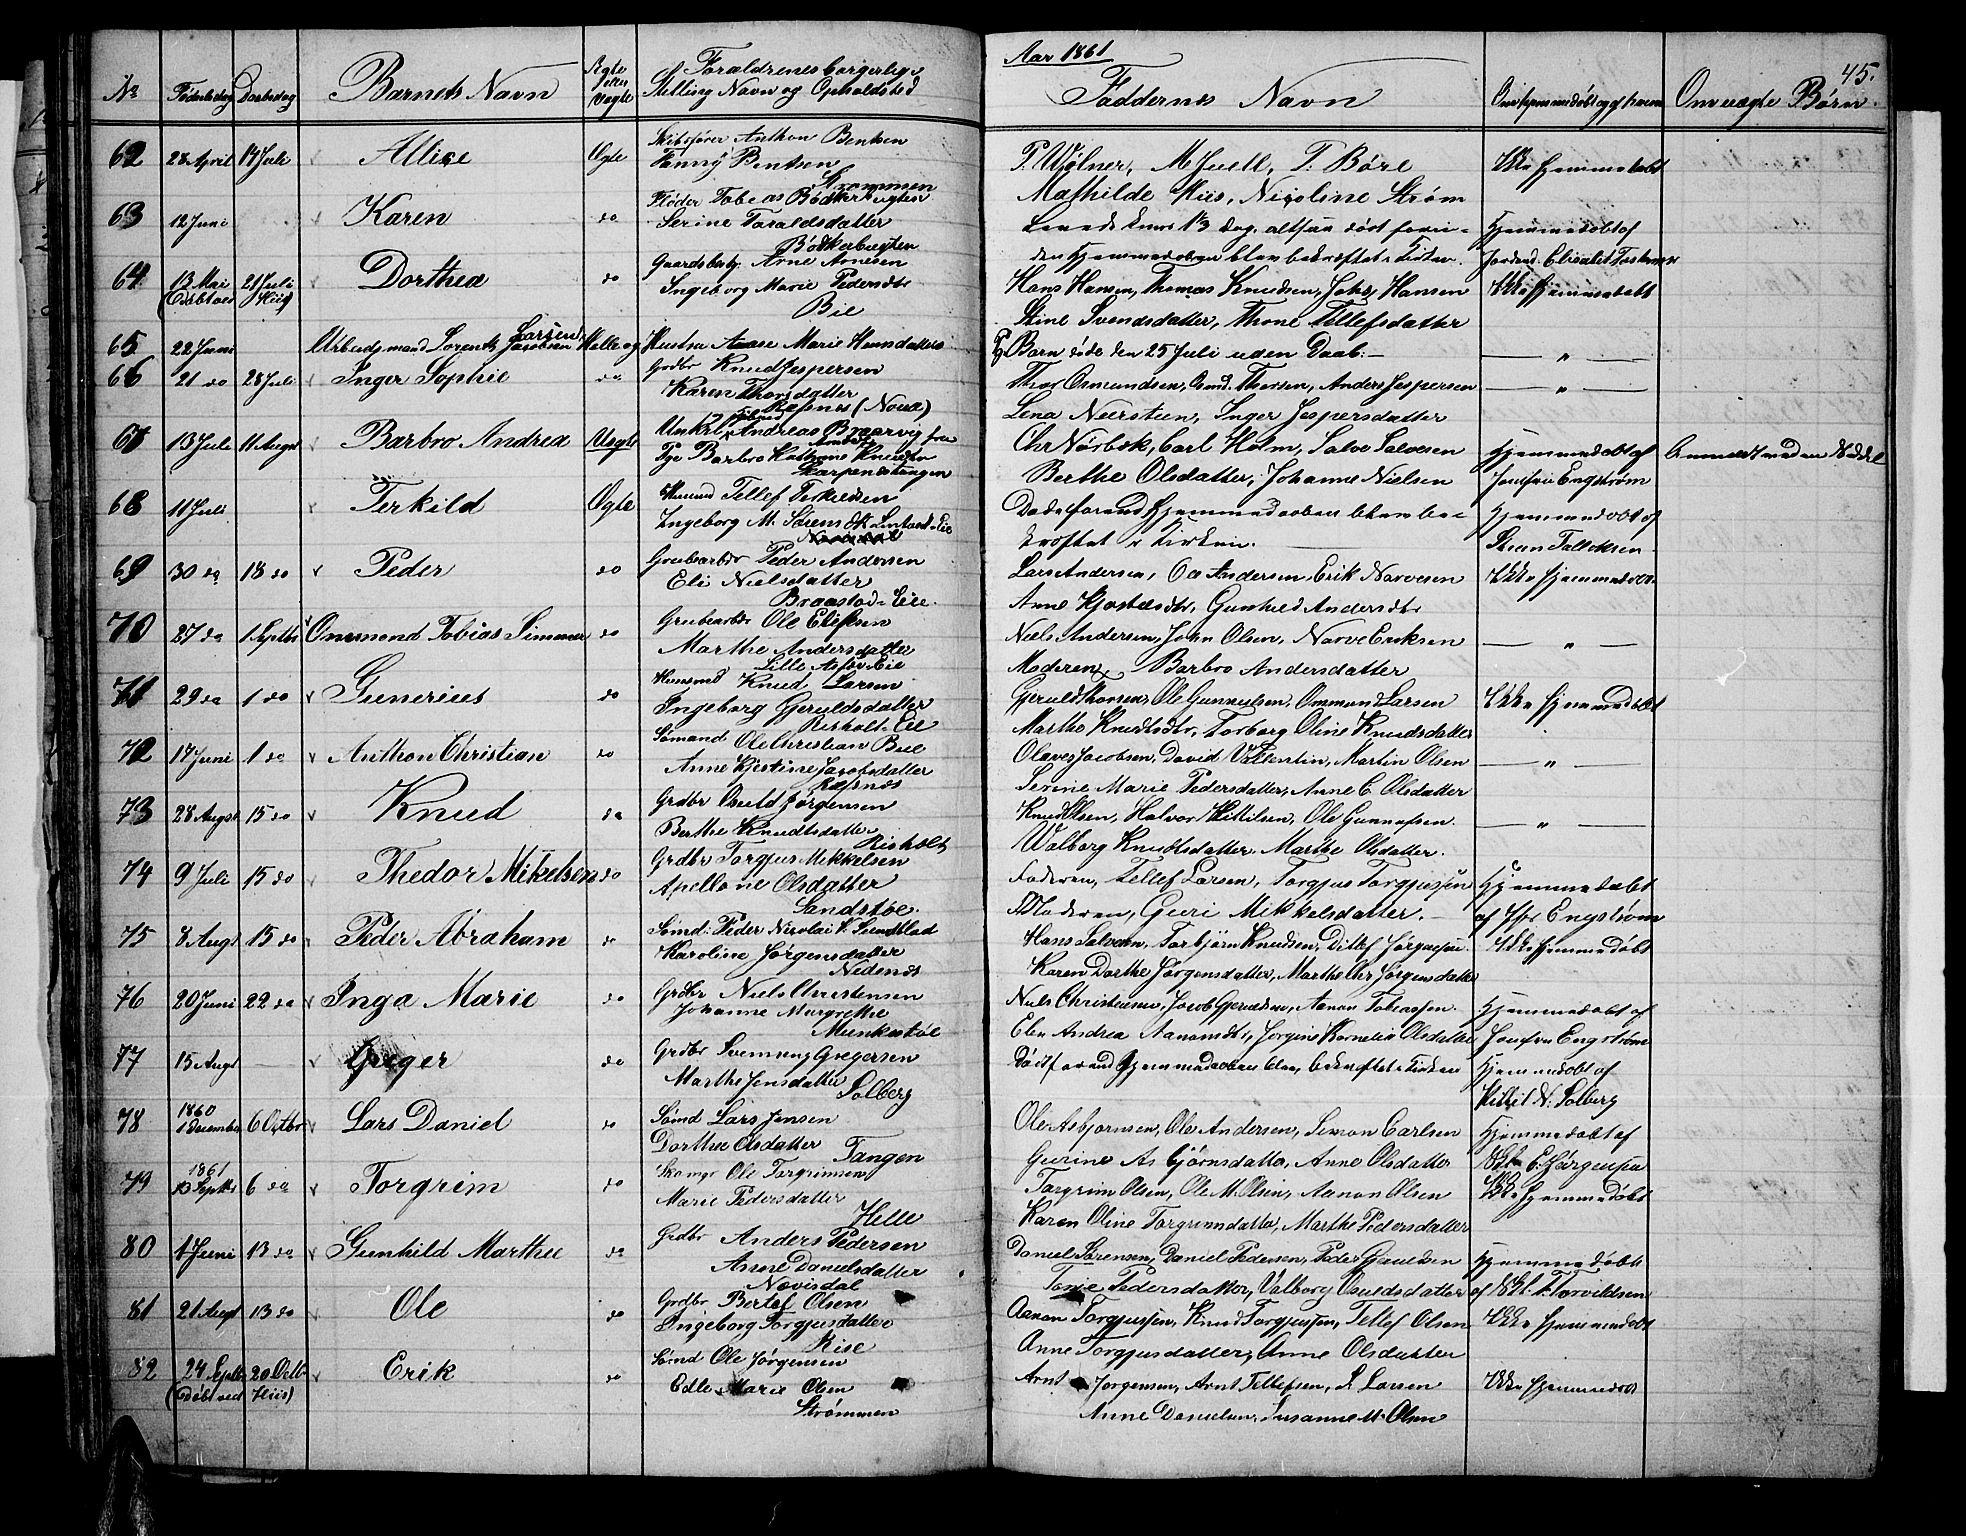 Aar 1861
45.
No Fødselsdag Daabsdag Barnets Navn Ægte eller Uægte Forældrenes borgerlige Stilling Navn og Opholdsted Faddernes Navn Om hjemmedøbt og af hvem Om uægte Børn
62 28 April 14 Juli Allice Ægte Skibsfører Anthon Bentsen
Fanny Bentsen
Strømmen
P. Wølner, M Juell, T. Børe Ikke hjemmedøbt
Mathilde Hiis, Nicoline Strøm
63 12 Juni Karen do Fløder Tobias Bødkerbugten
Serine Taraldsdatter
Bødkerbugten
Levede kuns 13 Dag, altsaa død forinden Hjemmedaaben blev bekræftet i Kirken. Hjemmedøbt af
Jordmd. Elisabet
64 13 Mai 21 Juli Dorthea do Gaardsbest. Arne Arnesen
(Døbt ved Hiis)
Ingeborg Marie Pedersdtr
Bie
Hans Hansen, Thomas Knudsen, John Hansen Ikke hjemmedøbt
Stine Svendsdatter, Thone Tellefsdatter
65 22 Juni Arbeidsmand Lorentz Jacobsen Larsen Helle og Hustru Aase Marie Hansdatters
Barn døde den 25 Juli uden Daab. — " —
66 21 do 28 Juli Inger Sophie do Grdbr Knud Jespersen
Karen Thorsdatter
Ræfsnes (Noua)
Thor Osmundsen, Osmd. Thorsen, Anders Jespersen — " —
Lena Neersteen, Inger Jespersdatter
67 13 Juli 11 August Barbro Andrea Uægte Unkrl. Andreas Braarvig fra
Pge Barbro Kathrine Knudsen
Chr Nørbek, Carl Holm, Salve Salvesen Hjemmedøbt af
Berthe Olsdatter, Johanne Nielsen Jomfru Engstrøm
68 11 Juli Terkild Ægte Husmd Tellef Terkildsen
Ingeborg M. Sørensdtr
Døde forend Hjemmedaaben blev be- Hjemmedøbt af
kræftet i Kirken.
69 30 do 18 do Peder do Grubearbdr Peder Andersen
Eli Nielsdatter
Braastad-Eie.
Lars Andersen, Ole Andersen, Erik Narvesen Ikke hjemmedøbt
Anne Gunhild Andersdtr
70 27 do 1 Septbr Onemond Tobias Simmer do Grubearbdr Ole Ellefsen
Marthe Andersdatter
Lille Asføv Eie
Niels Andersen, John Olsen, Narve Eriksen — " —
Moderen, Barbro Andersdatter
71 29 do 1 do Gunerius do Husmd Knud Larsen
Ingeborg Geruldsdatter
Risholt-Eie
Geruld Ole Gunnulsen, Ommund Larsen Ikke hjemmedøbt
Marthe Knudsdtr, Torborg Oline Knudsdatter
72 14 Juni 1 do Anthon Christian do Sømand Ole Christian Bie
Anne Kjerstine Jacobsdatter
Ræfsnæs
Olaves Jacobsen, David Vallentin, Martin Olsen — " —
Serine Marie Pedersdatter, Anne C. Olsdatter
73 28 Augst 15 do Knud do Grdbr Osuld Jørgensen
Berthe Knudsdatter
Risholt
Knud Olsen, Halvor Kittilsen, Ole Gunnufsen. — " —
Walborg Knudtsdatter. Marthe Olsdatter.
74 9 Juli 15 do Thedor Mikelsen do Grdbr Torgjus Mikkelsen
Apellone Olsdatter
Sandstøe.
Faderen, Tellef Larsen, Torgjus Torgjussen Hjemmedøbt
Moderen, Guri Mikkelsdatter. af Jfr Engstrøm
75 8 Augt 15 do Peder Abraham do Sømd: Peder Nicolai K. Sundblad
Karoline Jørgensdatter
Nedenæs
Hans Salvesen, Torbjørn Knudsen, Ditlef Jørgensen. Ikke hjemmedøbt
Karen Dorthe Jørgensdatter, Marthe Chr Jørgensdatter
76 20 Juni 22 do Inga Marie do Grdbr Niels Christensen
Johanne Margrethe
Munkestøe
Niels Christensen, Jacob Aanon Tobiassen. Hjemmedøbt af
Elen Andrea Aanonsdtr, Jørgine Kornelia Olsdatter Jomfru Engstrøm
77 15 Augt Greger do Grdbr Svenning Gregersen
Marthe Jensdatter
Solberg
Død forend Hjemmedaaben blev bekræftet i Kirken Hjemmedøbt af
Kittil N. Solberg
78 1860 1 December 6 Octbr Lars Daniel do Sømd Lars Jensen
Dorthea Olsdatter
Tangen
Ole Asbjørnsen, Ole Andersen, Simon Carlsen Hjemmedøbt af
Gurine Asbjørnsdatter, Anne Olsdatter
79 1861 13 Septbr 6 do Torgrim do Skomgr Ole Torgrimsen
Marie Pedersdatter
Helle
Torgrim Olsen, Ole M. Olsen, Aanon Olsen Ikke hjemmedøbt
Karen Oline Torgrimsdatter, Marthe Pedersdatter
80 1 Juni 13 do Gunhild Marthee do Grdbr Anders Pedersen
Anne Danielsdatter
Novisdal
Daniel Sørensen, Daniel Pedersen, Peder Hjemmedøbt
Tonje Pedersdatter, Valborg Osuldsdatter af T. Torvildsen
81 21 Augt 13 do Ole do Grdbr Bertel Olsen
Ingeborg Torgjusdatter
Rise
Aanon Torgjussen, Knud Torgjussen, Tellef Olsen Ikke hjemmedøbt
Anne Torgjusdatter, Anne Olsdatter
82 24 Septbr 20 Octb Erik do Sømd Ole Jørgensen
(Døbt ved Hiis)
Edle Marie Olsen
Strømmen
Arnt Jørgensen, Arnt Tellefsen, L Larsen Ikke hjemmedøbt
Anne Danielsen, Susanne M. Olsen